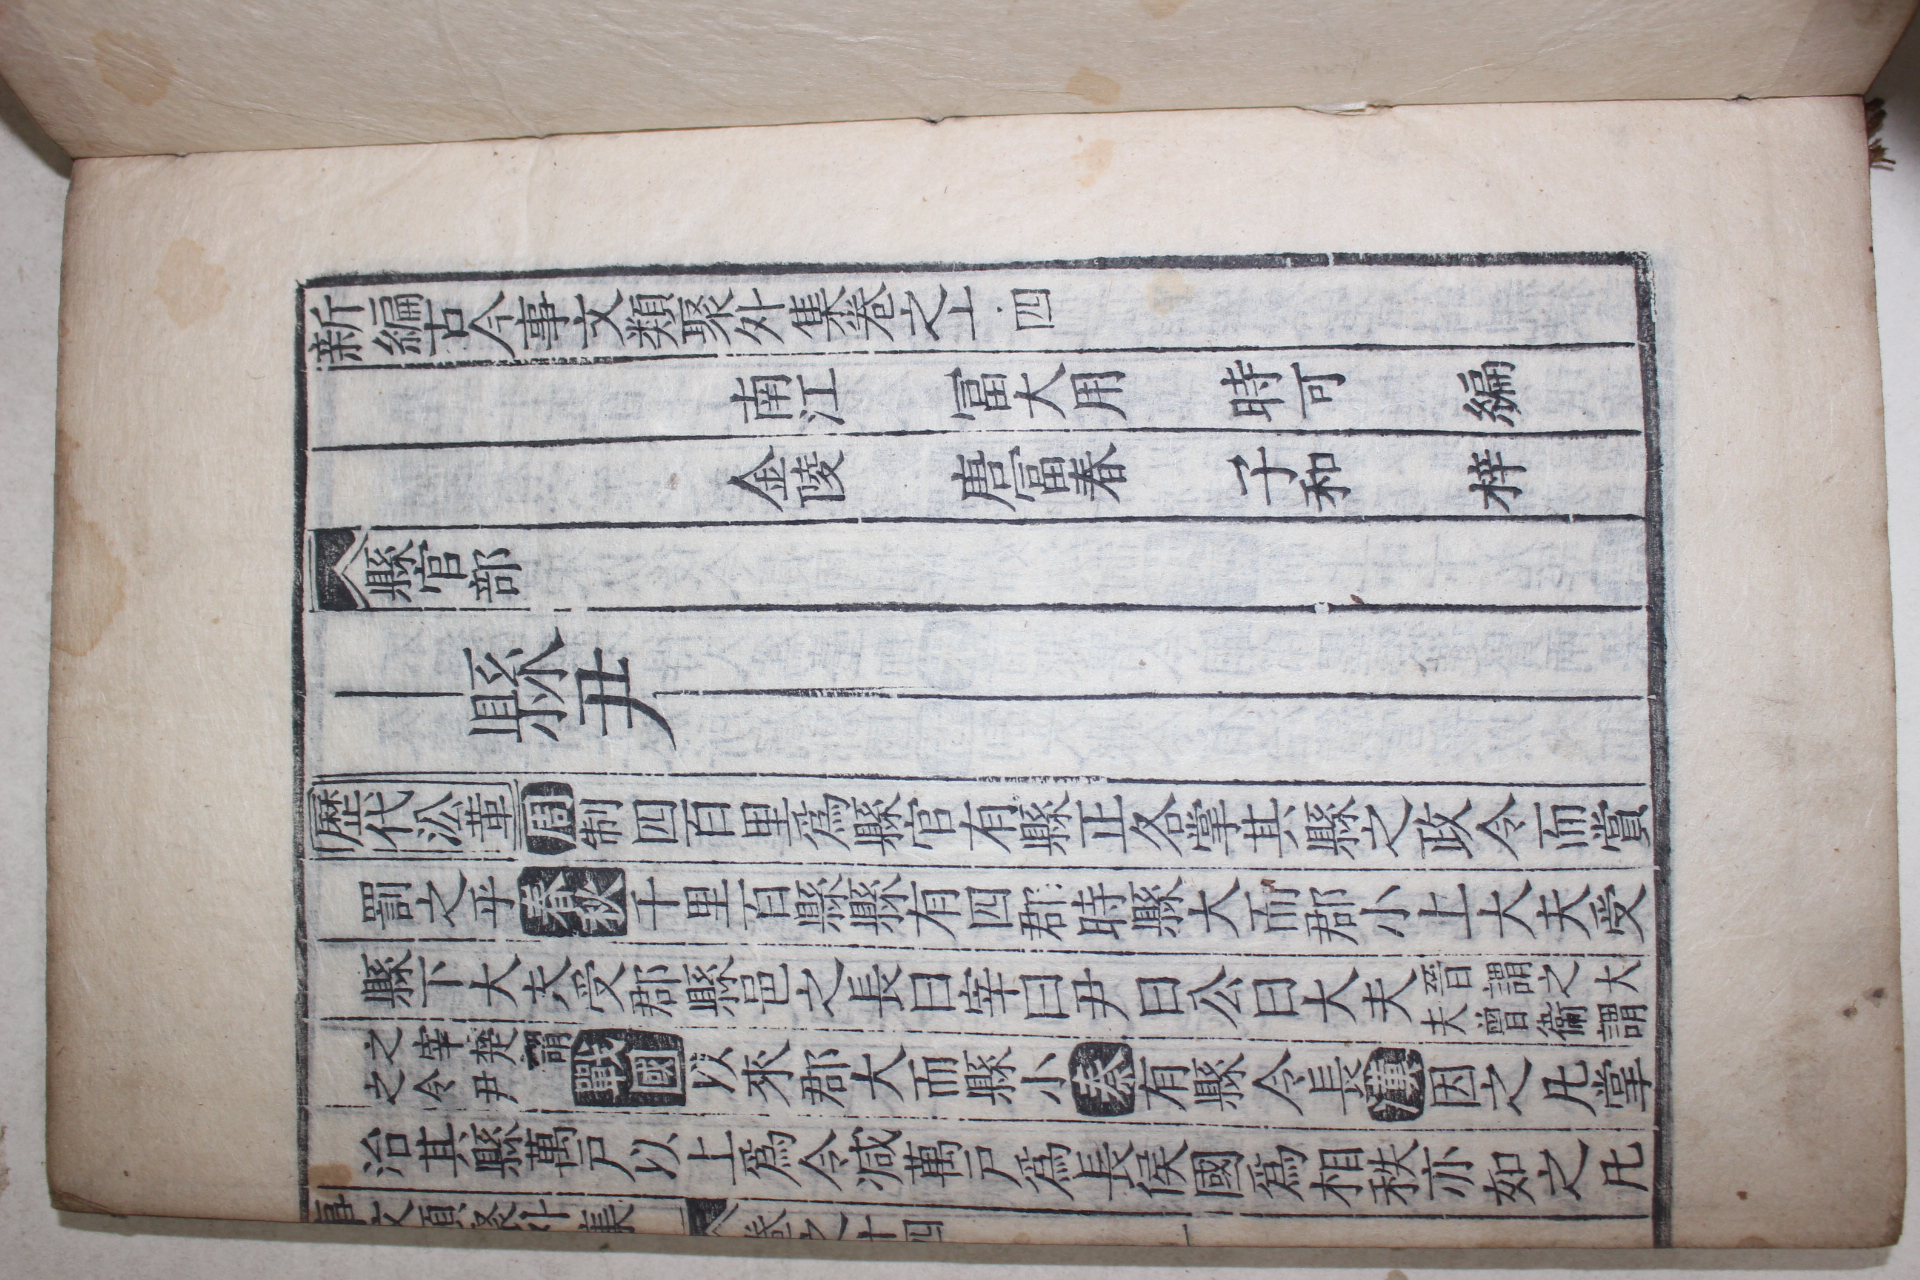 新編古今事文類聚外集卷之十四
南江 冨大用 時可 編
金陵 唐冨春 子和 梓
縣官部
縣尹
歷代沿革 周制四百里爲縣官有縣正各掌其縣之政令而賞
罰之乎春秋千里百縣縣有四郡時縣大而郡小上大夫受
縣下大夫受郡縣邑之長曰宰曰尹曰公曰大夫晉謂之大夫曾衞謂
之宰楚謂之令尹戰國以來郡大而縣小秦有縣令長漢因之凡掌
治其縣萬戶以上爲令减萬戶爲長侯國爲相秩亦如之凡
事文類聚外集 卷之十四 一